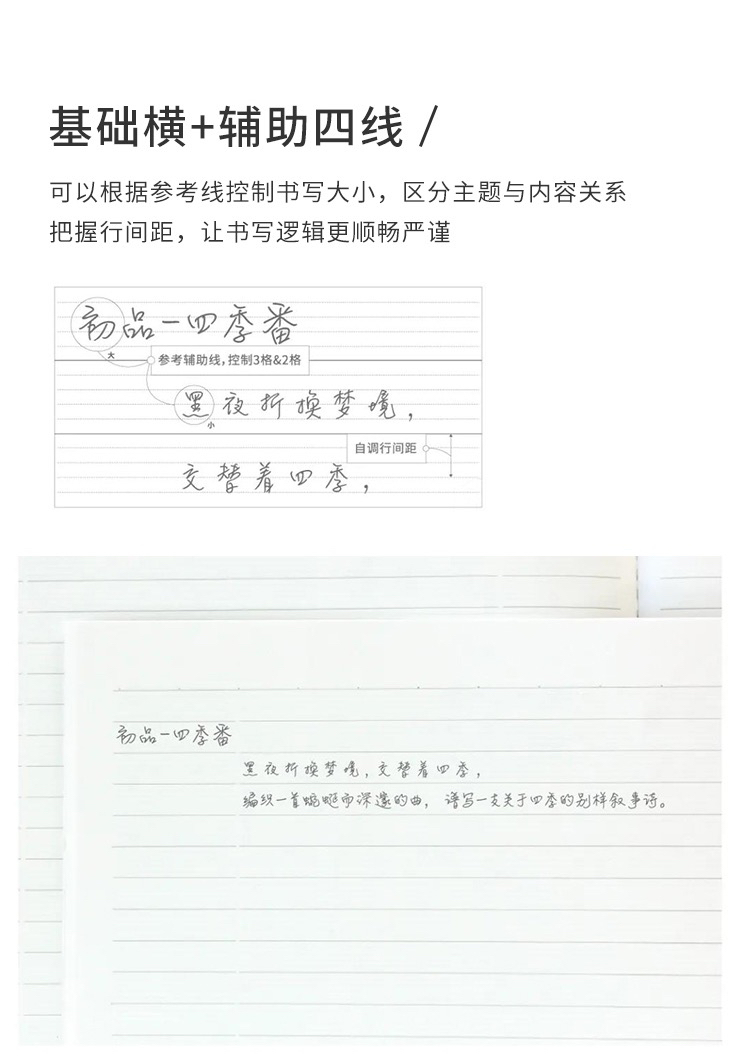 基础横+辅助四线 /
可以根据参考线控制书写大小，区分主题与内容关系
把握行间距，让书写逻辑更顺畅严谨
初品一四季番
大
参考辅助线，控制3格&2格
黑夜折换梦境，
小
自调行间距
交替着四季，
初品一四季番
黑夜折换梦境，交替着四季，
编织一首蜿蜒而深邃的曲，谱写一支关于四季的别样叙事诗。